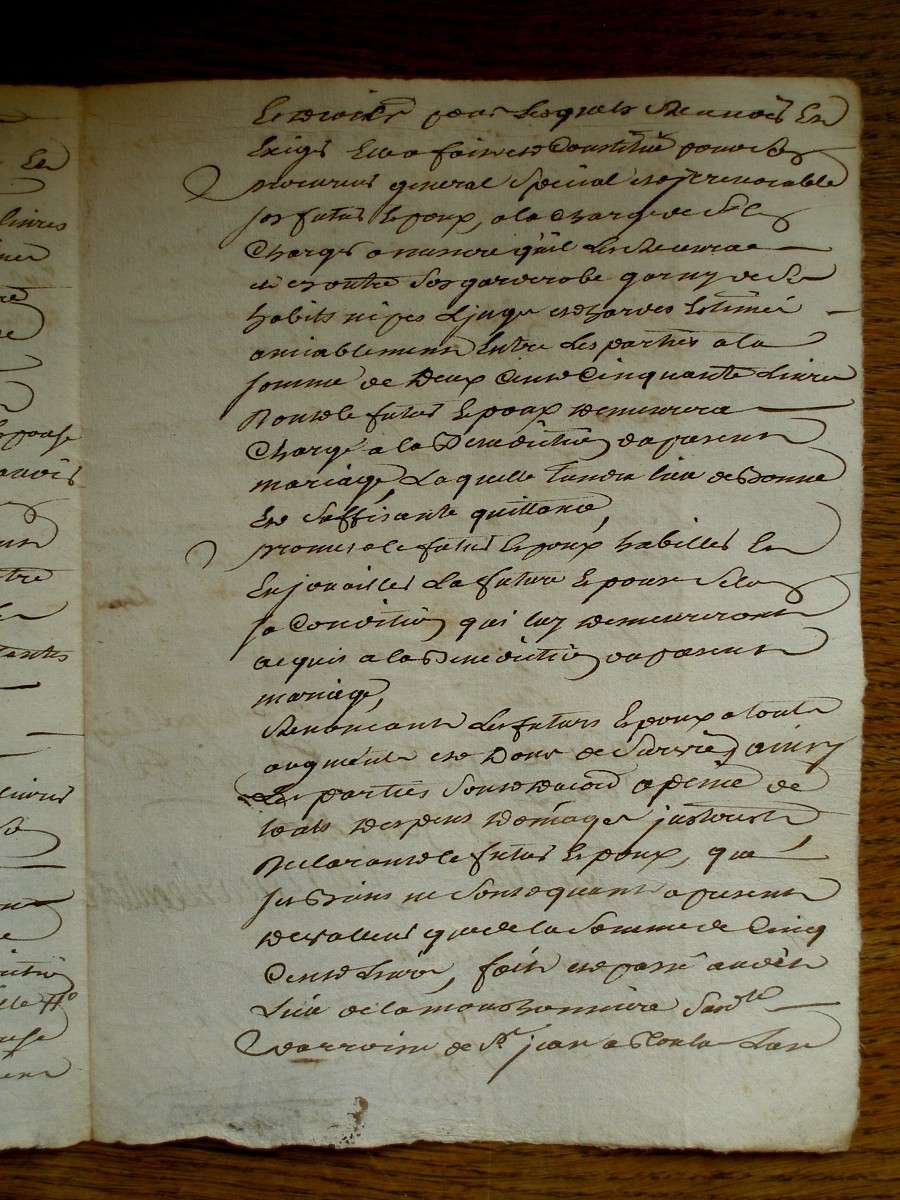 Et droits pour lesquels recevoir et
Exiger Elle a fait et Constitué pour son
procureur general special et irrevocable
son futur Epoux, a la charge de
Charges a mesure qu'il les recevra
et en outre son garderobe garny de ses
habits nipes linge et hardes Estimés
amiablement Entre les parties a la
somme de Deux Cent Cinquante Livres
Dont le futur Epoux demeurera
Chargé a la Benediction du present
mariage, Laquelle tiendra lieu de Bonne
Et suffisante quittance,
promet le futur Epoux habiller et
Enjoüailler La future Epouse selon
sa Condition qui luy demeureront
acquis a la Benediction du present
mariage,
Renonceant les futurs Epoux a tout
augment et Dons de Survie, ainsy
Les parties sont d'acord a peine de
touts despens Domages
Declarant le futur Epoux, que
ses Biens ne sont quant a present
de valleur que de la somme de Cinq
Cents Livres, fait et passé audit
Lieu de la parroisse de St jean a L'an